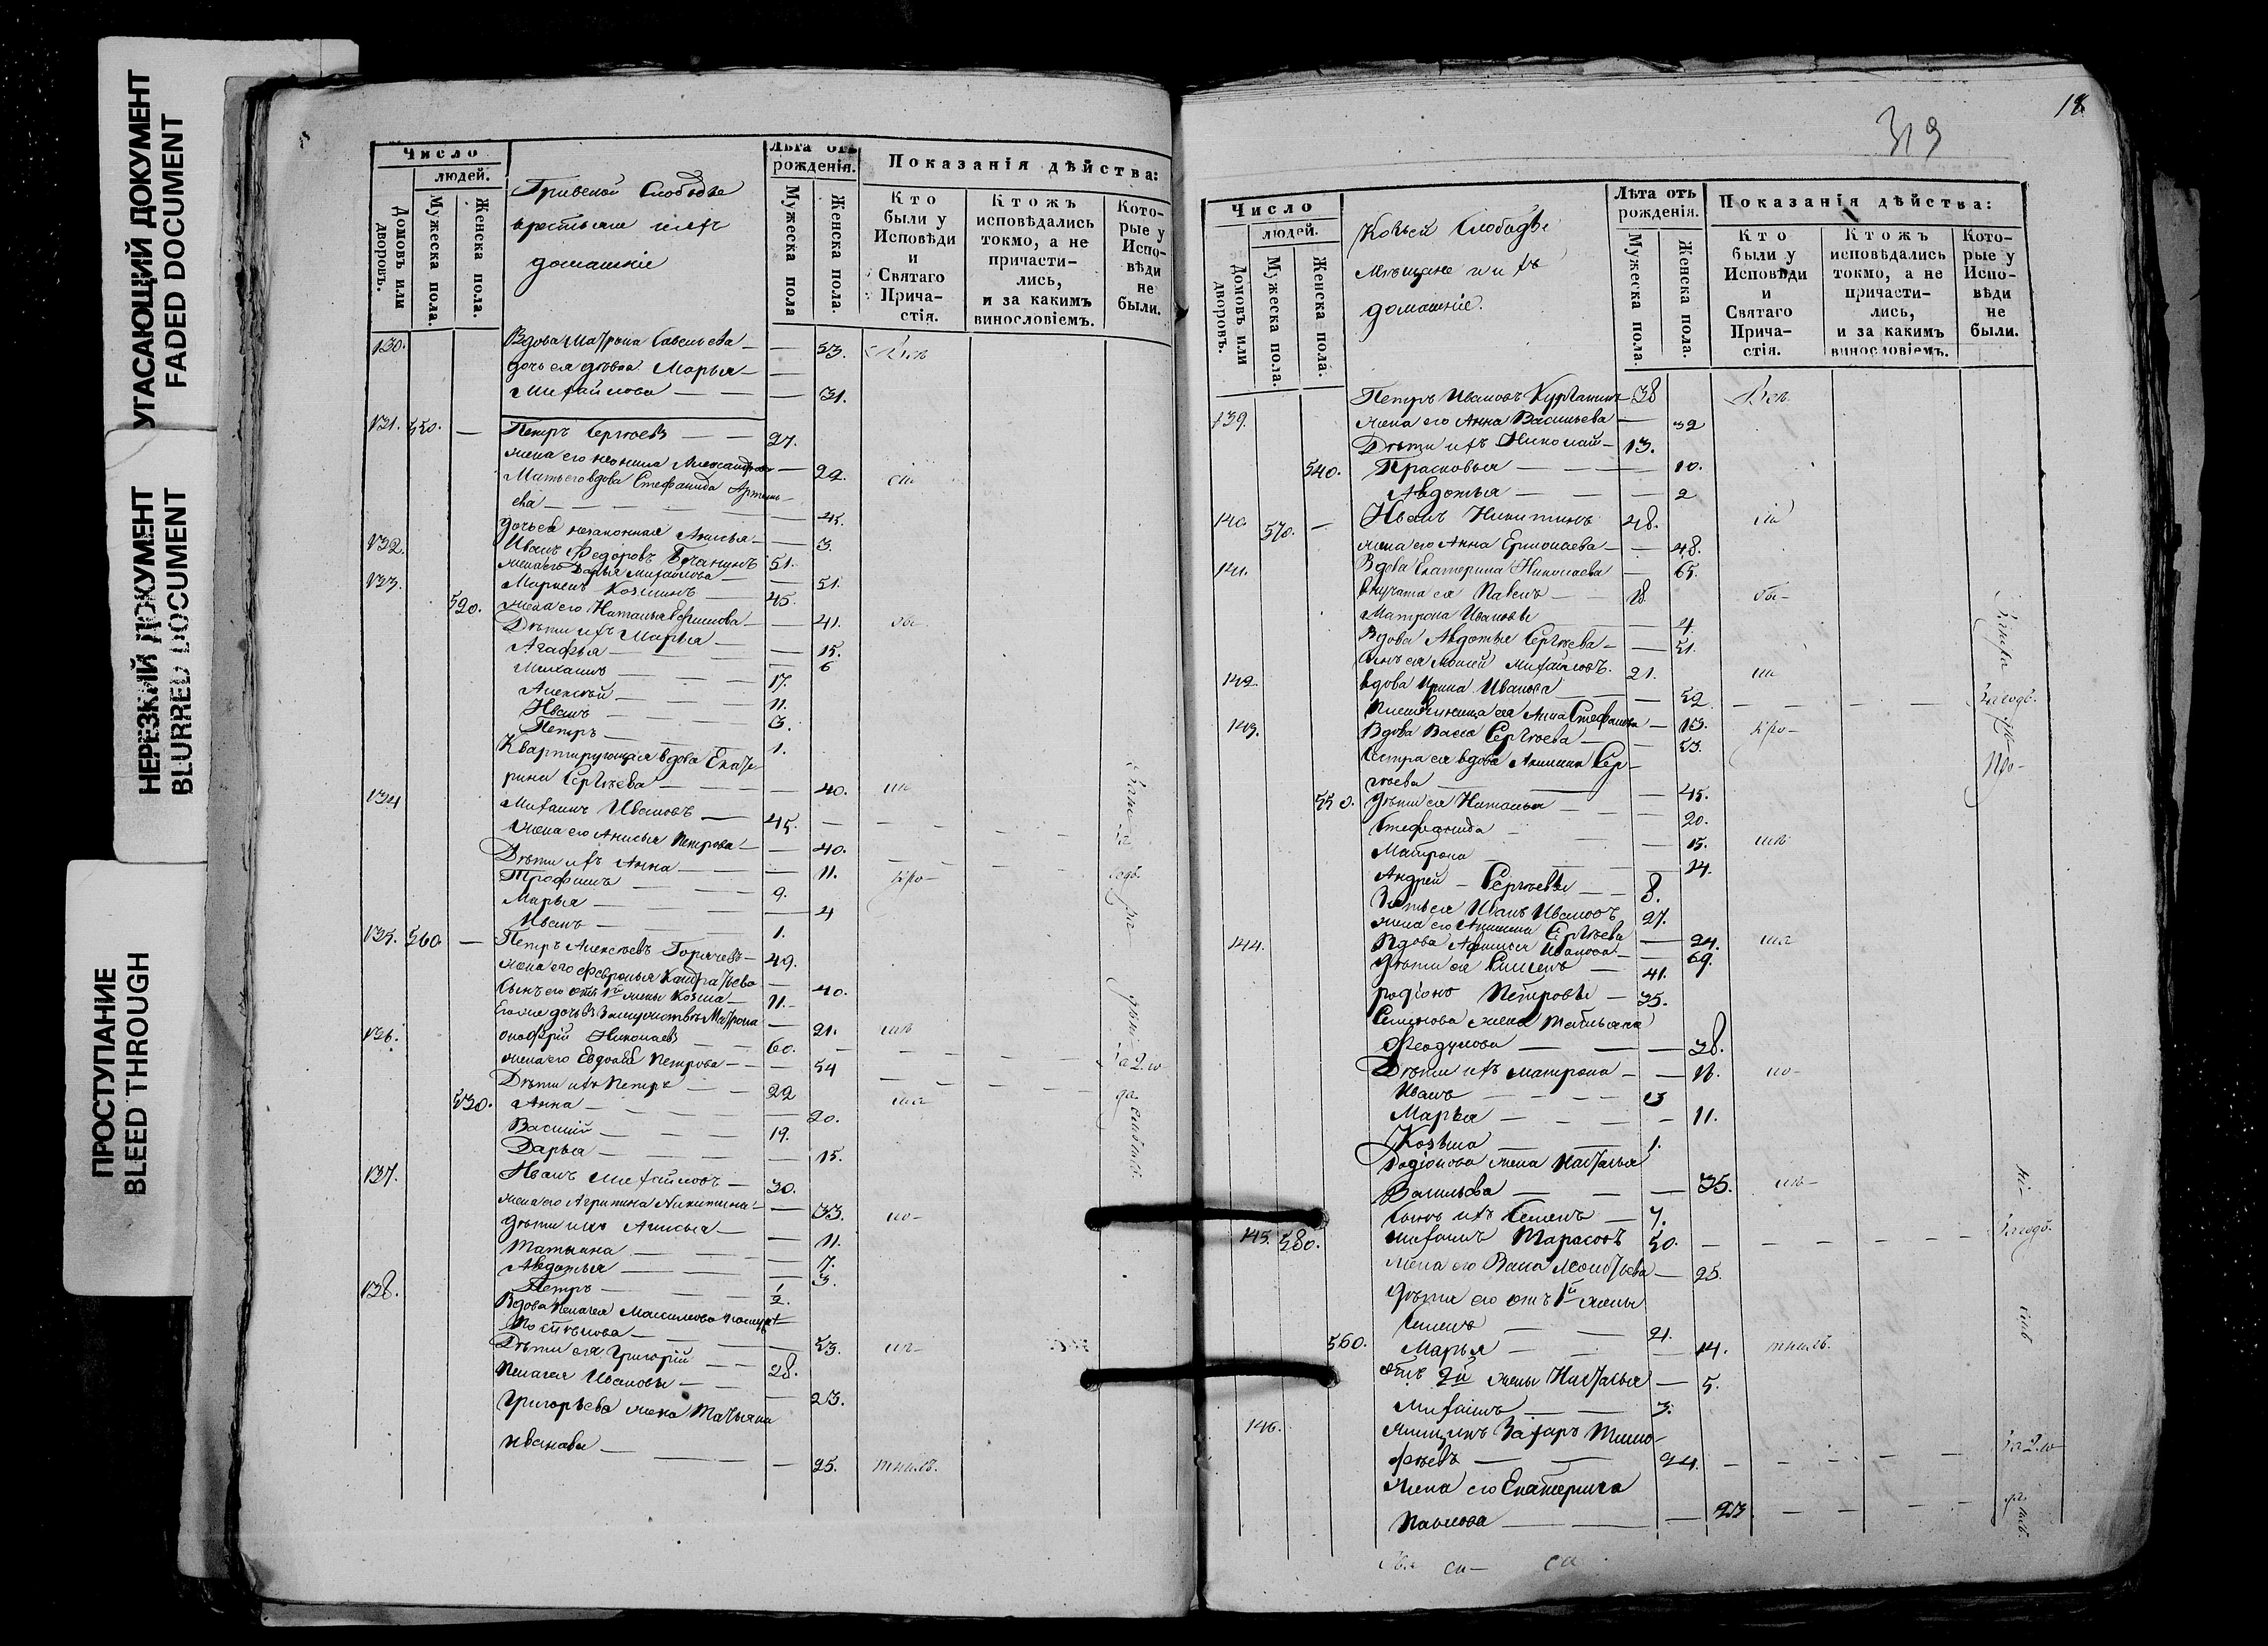 УГАСАЮЩИЙ ДОКУМЕНТ
FADED DOCUMENT
НЕРЕЗКИЙ ДОКУМЕНТ
BLURRED DOCUMENT
ПРОСТУПАНИЕ
BLEED THROUGH
Число
людей.
Домовъ или дворовъ.
Мужеска пола.
Женска пола.
Слободы
домашніе
Лѣта отъ рожденія.
Мужеска пола
Женска пола.
Показанія дѣйства:
Кто были у Исповѣди и Святаго Прича- стія.
Ктожъ исповѣдались токмо, а не причасти- лись, и за какимъ винословіемъ.
Кото- рые у Испо- вѣди не были.
130. Вдова Матрона Савельева — — 53.
дочь ея дѣвка Марья —
Михайлова — — — 31.
131. 550. — Петръ Сергѣевъ — — 27.
жена его Неонила Александрова — 22.
Мать его вдова Стефанида Артемь-
ева — — — — 45.
дочь ея незаконная Анисья — — 3.
132. Иванъ Федоровъ 51.
жена его Дарья Михайлова — — 51.
133. Козминъ — 45.
520. жена его Наталья Ефимова — — 41.
Дѣти ихъ Марья — — 15.
Агафья — — — — 6
Михаилъ — — — 17.
Алексѣй — — 11.
Иванъ — — 3.
Петръ — — — 1.
Квартирующая вдова Екате-
рина Сергѣева — — — — 40.
134 Михаилъ Ивановъ — 45. —
Жена его Анисья Петрова — — 40.
Дѣти ихъ Анна — — — — 11.
Трофимъ — — — 9.
Марья — — — — 4
Иванъ — — — 1.
135. 560 — Петръ Алексѣевъ Горячевъ — 49.
жена его Февронья Кондратьева — 40.
Сынъ его отъ 1й жены Козма — 11. —
Его же дочь въ замужствѣ Матрона — 21.
136. Онофрій Николаевъ — — 60. —
жена его Евдокія Петрова — — — 54
Дѣти ихъ Петръ — — 22
530. Анна — — — — — 20.
Василій — — — 19.
Дарья — — — — 15.
137. Иванъ Михайловъ — 30.
жена его Агрипина Никитина — — 33.
дѣти ихъ Анисья — — 11.
Татьяна — — — — 7.
Авдотья — — — — 3.
Петръ — — — 1/2.
138. Вдова Пелагея Максимова
— — — 53.
Дѣти ея Григорій — — 28.
Пелагея Ивановы — — — 23.
Григорьева жена Татьяна
Иванова — — — — 25.
18
319
Число
людей.
Домовъ или дворовъ.
Мужеска пола.
Женска пола.
Слободы
Мѣщане и ихъ
домашніе.
Лѣта отъ рожденія.
Мужеска пола.
Женска пола.
Показанія дѣйства:
Кто были у Исповѣди и Святаго Прича- стія.
Ктожъ исповѣдались токмо, а не причасти- лись, и за какимъ винословіемъ.
Кото- рые у Испо- вѣди не были.
139. Петръ Ивановъ 38
жена его Анна Васильева — 32
Дѣти ихъ Николай — 13.
540. Прасковья — — — — 10.
Авдотья — — — 2
140. 570. — Иванъ Никитинъ 48.
жена его Анна Ермолаева — — 48.
141. Вдова Екатерина Николаева — 65.
внучата ея Павелъ — — 8.
Матрона Ивановы — 4.
Вдова Авдотья Сергѣева — — 51.
Сынъ ея Моисей Михайловъ. 21.
142. вдова Ирина Иванова — — 52
Племянница ея Анна Стефанова — 13.
143. Вдова Васса Сергѣева — — 53.
Сестра ея вдова Акилина Сер-
гѣева — — — 45.
550. дѣти ея Наталья — — — 20.
Стефанида — — 15.
Матрона — — — 14.
Андрей — Сергѣевы — — 8.
Зять ея Иванъ Ивановъ 27.
жена его Акилина Сергѣева — 24.
144. Вдова Афимья Иванова — — 69.
дѣти ея Симеонъ — 41.
Родіонъ Петровы — 35.
Семенова жена Татьяна
Феодулова — — — 38.
Дѣти ихъ Матрона — — 16.
Иванъ — — — — 13
Марья — — — — 11.
Козьма — — — 1.
Родіонова жена Наталья
Васильева — — — 35.
Сынъ ихъ Семенъ — 7.
145. 580. Михаилъ Тарасовъ 50. — — — — — —
жена его Васса — 25.
дѣти его отъ 1й жены
Семенъ — — 21.
560. Марья — — — 14.
отъ 2й жены Наталья — 5.
Михаилъ — — 3.
146. Мѣщанинъ Захаръ Тимо-
фѣевъ — — 24. — — — — —
жена его Екатерина
Павлова — — — 23 — — — —